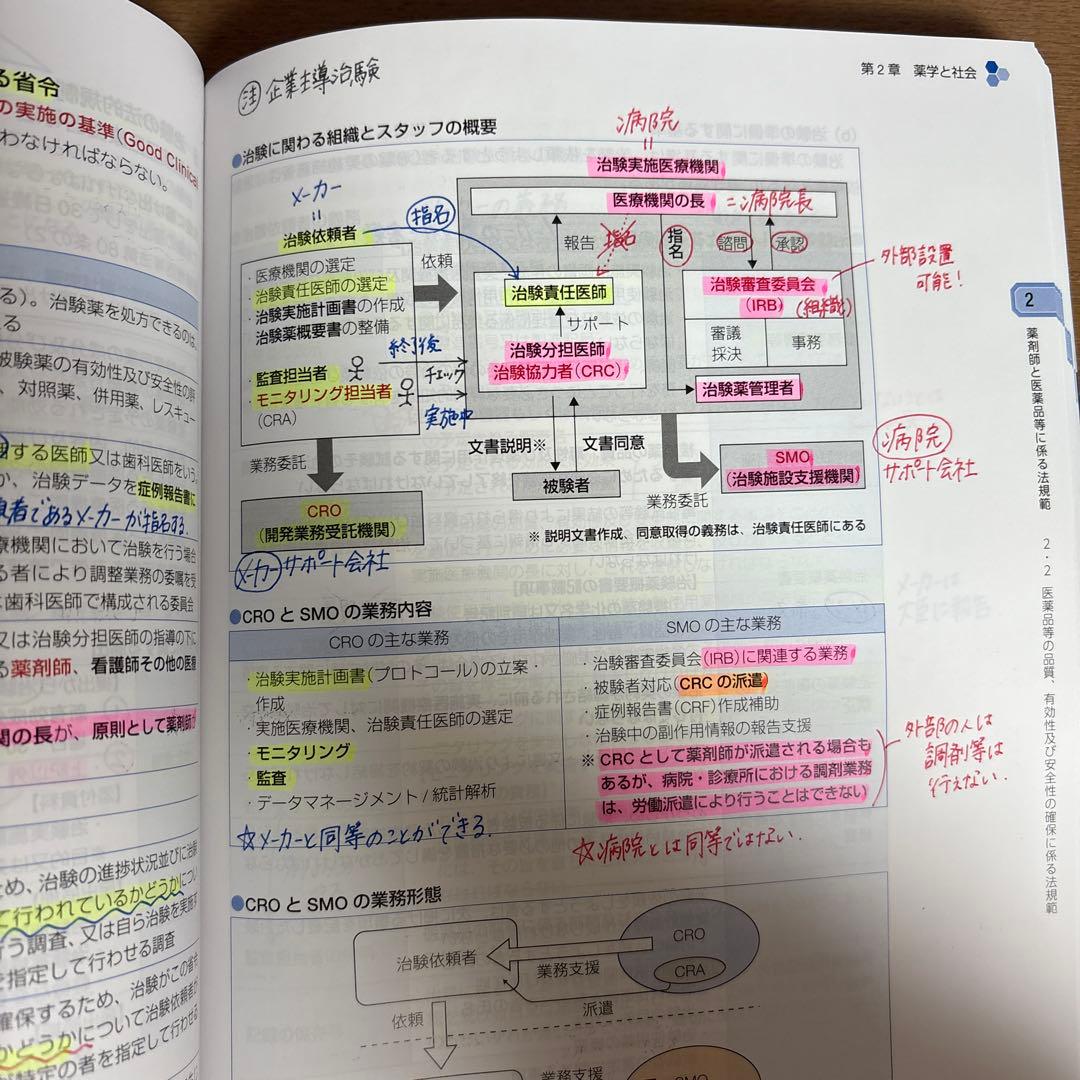 る省令
の実施の基準(Good Clinical
わなければならない。
る)。治験薬を処方できるのは、
える
被験薬の有効性及び安全性の評
、対照薬、併用薬、レスキュー
する医師又は歯科医師をいう。
か、治験データを症例報告書に
者であるメーカーが指名する.
療機関において治験を行う場合
る者により調整業務の委嘱を受
歯科医師で構成される委員会
又は治験分担医師の指導の下に
る薬剤師、看護師その他の医療
関の長が、原則として薬剤師が
ため、治験の進捗状況並びに治験
て行われているかどうかについ
行う調査、又は自ら治験を実施す
を指定して行わせる調査
確保するため、治験がこの省令
かどうかについて治験依頼者が
特定の者を指定して行わせる
第2章 薬学と社会
注 企業主導治験
●治験に関わる組織とスタッフの概要
病院
=
治験実施医療機関
医療機関の長 =病院長
メーカー
=
治験依頼者
指名
依頼
・医療機関の選定
・治験責任医師の選定
・治験実施計画書の作成
・治験薬概要書の整備
・監査担当者
・モニタリング担当者
(CRA)
終了後
チェック
実施中
報告
指名
指名
諮問
承認
治験責任医師
サポート
治験分担医師
治験協力者(CRC)
治験審査委員会
(IRB)(組織)
審議
採決
事務
治験薬管理者
外部設置
可能!
業務委託
CRO
(開発業務受託機関)
メーカーサポート会社
文書説明※
文書同意
被験者
業務委託
SMO
(治験施設支援機関)
病院
サポート会社
※ 説明文書作成、同意取得の義務は、治験責任医師にある
●CROとSMOの業務内容
CROの主な業務
SMOの主な業務
・治験実施計画書(プロトコール)の立案・
作成
・実施医療機関、治験責任医師の選定
・モニタリング
・監査
・データマネージメント/統計解析
☆メーカーと同等のことができる.
・治験審査委員会(IRB)に関連する業務
・被験者対応(CRCの派遣)
・症例報告書(CRF)作成補助
・治験中の副作用情報の報告支援
※ CRCとして薬剤師が派遣される場合も
あるが、病院・診療所における調剤業務
は、労働派遣により行うことはできない
☆病院とは同等ではない.
外部の人は
調剤等は
行えない.
●CROとSMOの業務形態
治験依頼者
業務支援
CRO
CRA
派遣
依頼
業務支援
SMO
2
薬剤師と医薬品等に係る法規範
2・2 医薬品等の品質、有効性及び安全性の確保に係る法規範